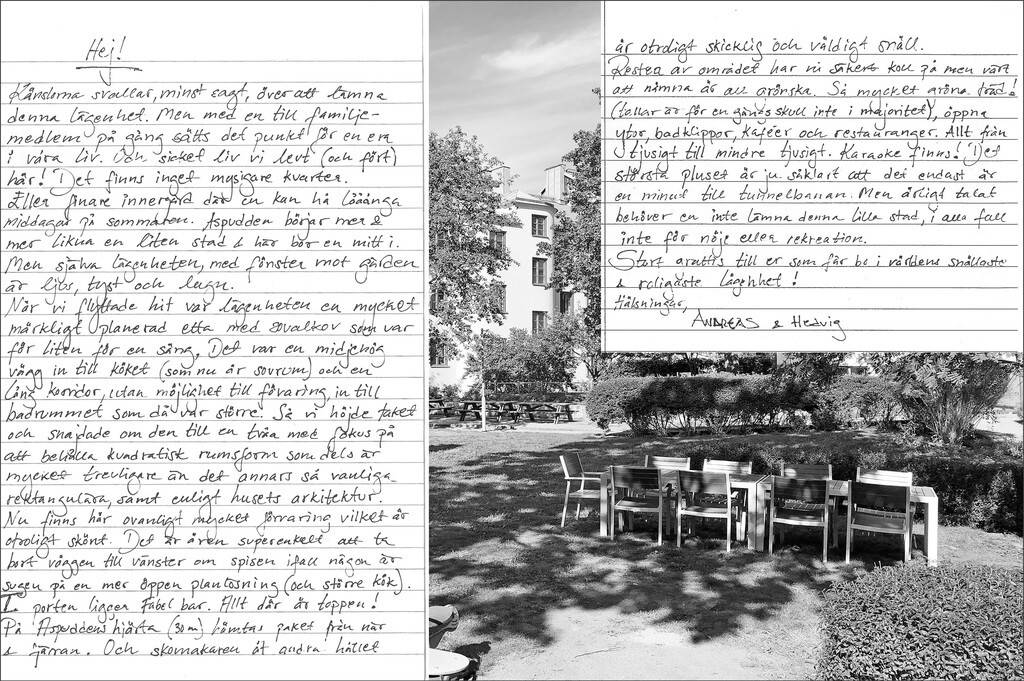 Hej!
Känslorna svallar, minst sagt, över att lämna
denna lägenhet. Men med en till familje-
medlem på gång sätts det punkt för en era
i våra liv. Och vicket liv vi levt (och fört)
här! Det finns inget mysigare kvarter.
Eller finare innergård där en kan ha lååånga
middagar på sommaren. Aspudden börjar mer &
mer likna en liten stad & här bor en mitt i.
Men själva lägenheten, med fönster mot gården
är ljus, tyst och lugn.
När vi flyttade hit var lägenheten en mycket
märkligt planerad etta med sovalkov som var
för liten för en säng. Det var en midjehög
vägg in till köket (som nu är sovrum) och en
lång korridor, utan möjlighet till förvaring, in till
badrummet som då var större. Så vi höjde taket
och snajdade om den till en tvåa med fokus på
att behålla kvadratisk rumsform som dels är
mycket trevligare än det annars så vanliga
rektangulära, samt enligt husets arkitektur.
Nu finns här ovanligt mycket förvaring vilket är
otroligt skönt. Det är även superenkelt att ta
bort väggen till vänster om spisen ifall någon är
sugen på en mer öppen planlösning (och större kök).
I porten ligger Fabel bar. Allt där är toppen!
På Aspuddens hjärta (30m) hämtas paket från när
& fjärran. Och skomakaren åt andra hållet
är otroligt skicklig och väldigt snäll.
Resten av området har ni säkert koll på men värt
att nämna är all grönska. Så mycket gröna träd!
(tallar är för en gångs skull inte i majoritet), öppna
ytor, badklippor, kaféer och restauranger. Allt från
tjusigt till mindre tjusigt. Karaoke finns! Det
största pluset är ju såklart att det endast är
en minut till tunnelbanan. Men ärligt talat
behöver en inte lämna denna lilla stad, i alla fall
inte för nöje eller rekreation.
Stort grattis till er som får bo i världens snällaste
& roligaste lägenhet!
Hälsningar,
ANDREAS & Hedvig